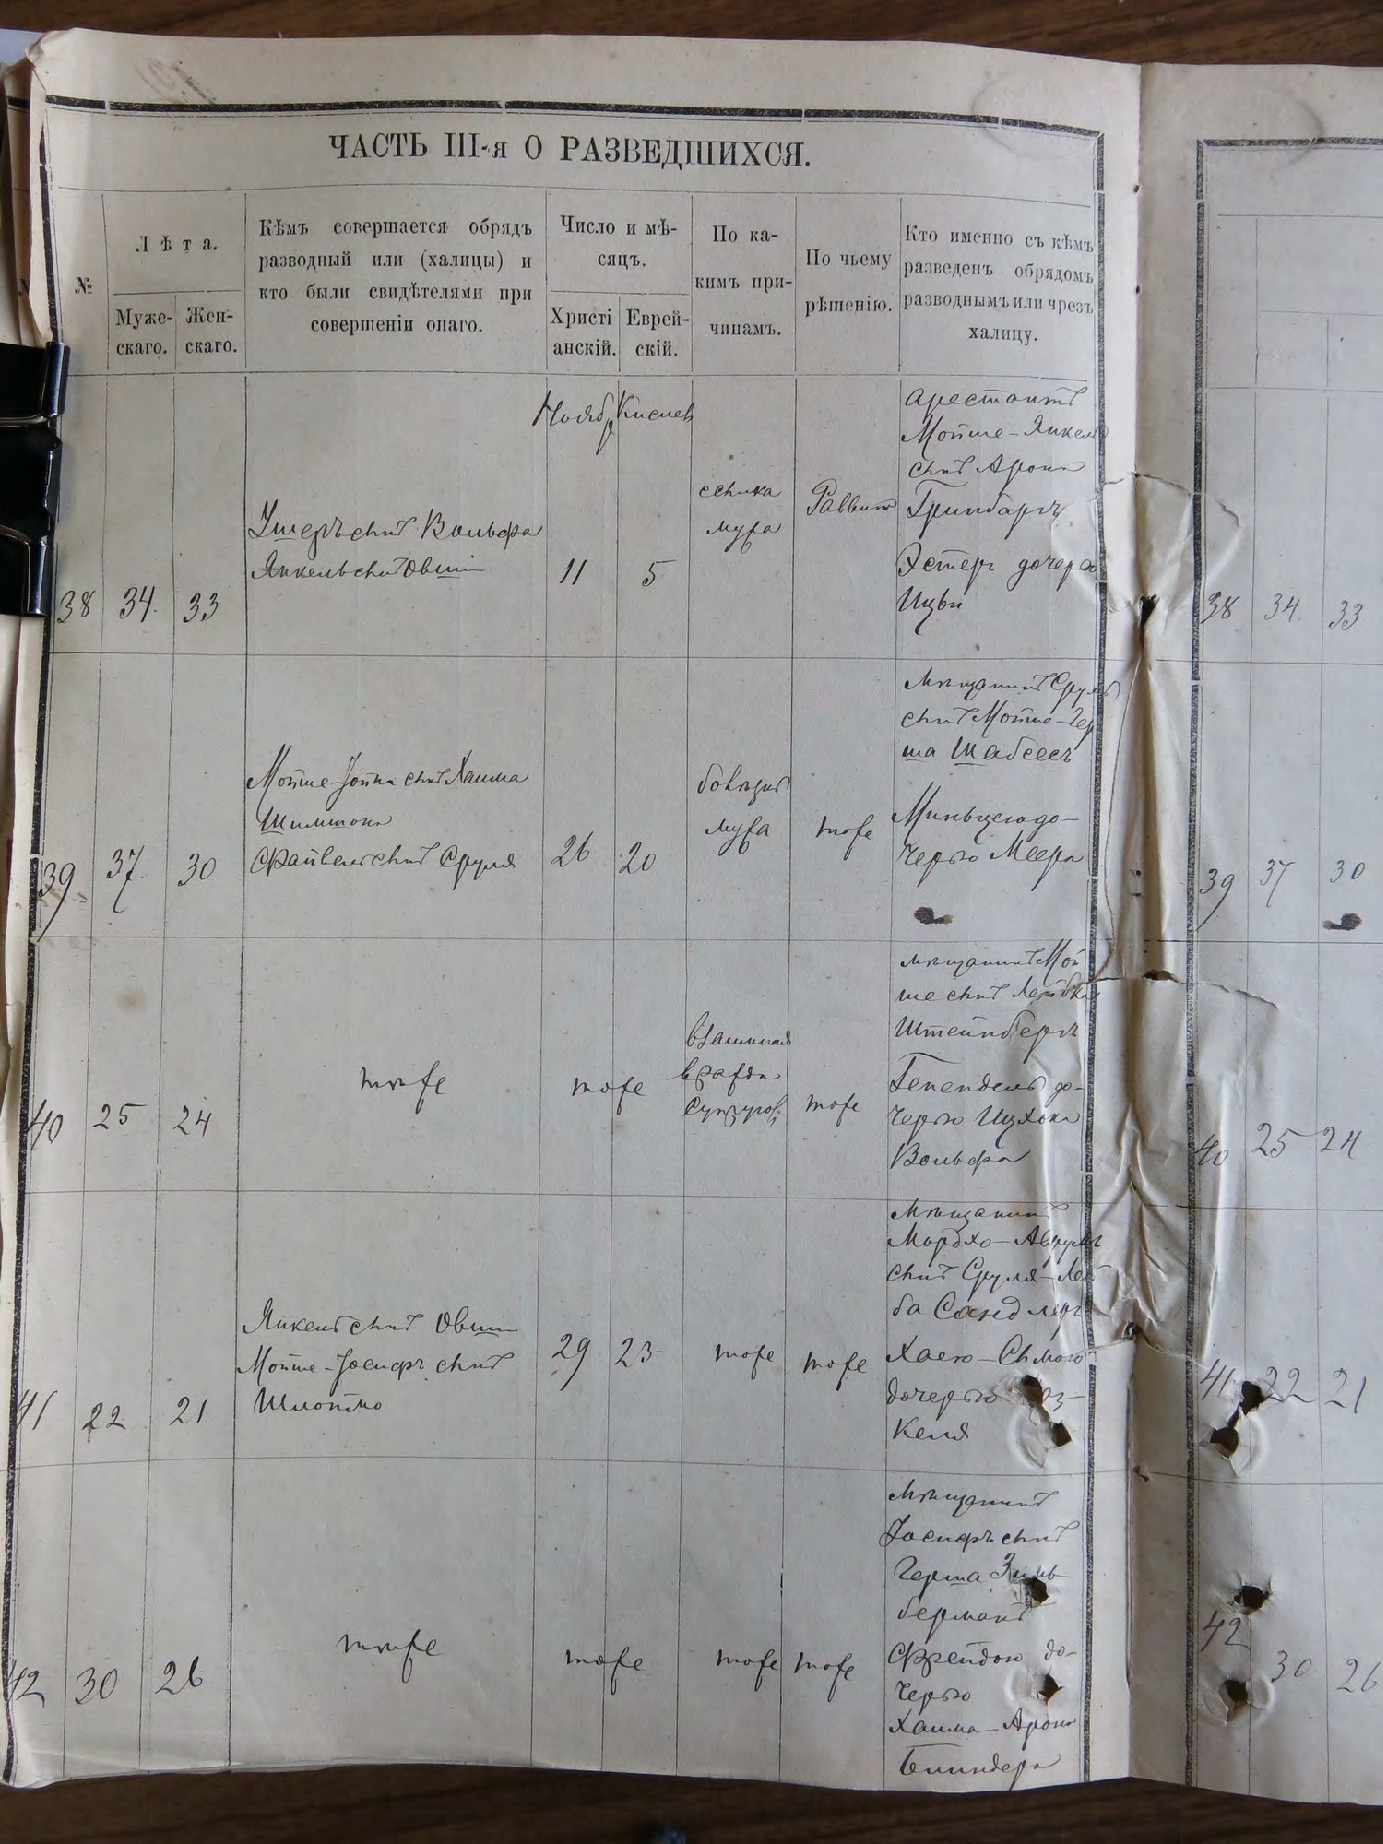 ЧАСТЬ III-я О РАЗВЕДШИХСЯ.
№
Лѣта.
Муже-
скаго.
Жен-
скаго.
Кѣмъ совершается обрядъ
разводный или (халицы) и
кто были свидѣтелями при
совершеніи онаго.
Число и мѣ-
сяцъ.
Христі
анскій.
Еврей-
скій.
По ка-
кимъ при-
чинамъ.
По чьему
рѣшенію.
Кто именно съ кѣмъ
разведенъ обрядомъ
разводнымъ или чрезъ
халицу.
38
34.
33
Ушеръ сынъ Вольфа
Янкель сынъ Овши
Ноябр
11
Кислев
5
ссылка
мужа
Раввин
арестантъ
Мойше-Янкель
сынъ Арона
Гринбаргъ
Эстерь дочерь
Ицки
39
37
30
Мойше-Іойна сынъ Хаима
Шимшона
Файвель сынъ Сруля
26
20
болѣзнь
мужа
тоже
мѣщанинъ Сруль
сынъ Мойше-Гер
ша Шабсесъ
Миньцею до-
черью Меера
40
25
24
тоже
тоже
взаимная
вражда
супругов
тоже
мѣщанинъ Мой
ше сынъ Лейбки
Штейнбергъ
Гепендель до-
черью Ицхока
Вольфа
41
22
21
Янкель сынъ Овши
Мойше-Іосифъ сынъ
Шлоймо
29
23
тоже
тоже
мѣщанинъ
Мордхо-Аврумъ
сынъ Сруля-Лей
ба Сандлеръ
Хаею-
дочерью
келя
42
30
26
тоже
тоже
тоже
тоже
мѣщанинъ
Іосифъ сынъ
Герша Зиль
берманъ
Фрейдою до-
черью
Хаима-Арона
Блиндера
38
34
33
39
37
30
40
25
24
41
22
21
42
30
26